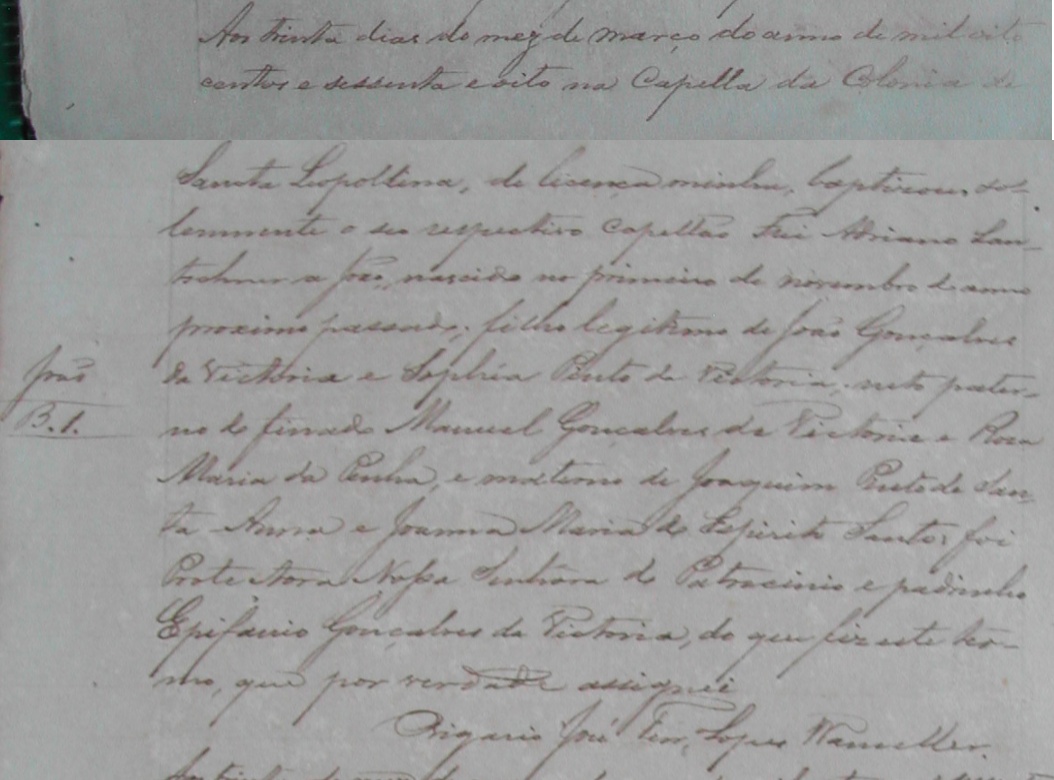 Aos trinta dias do mez de março do anno de mil oito
centos e sessenta e oito na Capella da Colonia de
Santa Leopoltina, de licença minha, baptizou so-
lemnemente o seo respectivo Capellão Frei Adriano Lan-
tschner a João, nascido no primeiro de novembro do anno
proximo passado, filho legitimo de João Gonçalves
da Victoria e Sophia Pinto da Victoria, neto pater-
João
B. 1.
no do finado Manuel Gonçalves da Victoria e Rosa
Maria da Penha, e materno de Joaquim Pinto de San-
ta Anna e Joanna Maria do Espirito Santo: foi
Protectora Nossa Senhora do Patrocinio e padrinho
Epifanio Gonçalves da Victoria, do que fiz este ter-
mo, que por verdade assignei
Vigario José Ferr. Lopes
Aos trinta